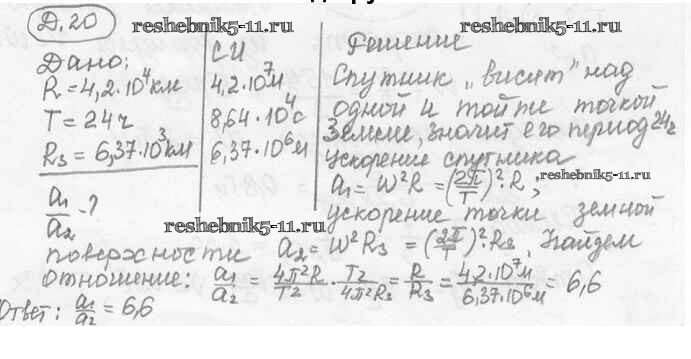 Д.20
reshebnik5-11.ru
reshebnik5-11.ru
Дано:
R = 4,2·10⁴ км
T = 24 ч
R₃ = 6,37·10³ км
a₁/a₂ - ?
СИ
4,2·10⁷ м
8,64·10⁴ с
6,37·10⁶ м
Решение
Спутник „висит" над
одной и той же точкой
Земли, значит его период 24 ч
ускорение спутника
a₁ = ω²R = (2π/T)²·R ;
reshebnik5-11.ru
reshebnik5-11.ru
ускорение точки земной
поверхности a₂ = ω²R₃ = (2π/T)²·R₃. Найдем
отношение: a₁/a₂ = 4π²R/T² · T²/4π²R₃ = R/R₃ = 4,2·10⁷м/6,37·10⁶м = 6,6
Ответ: a₁/a₂ = 6,6